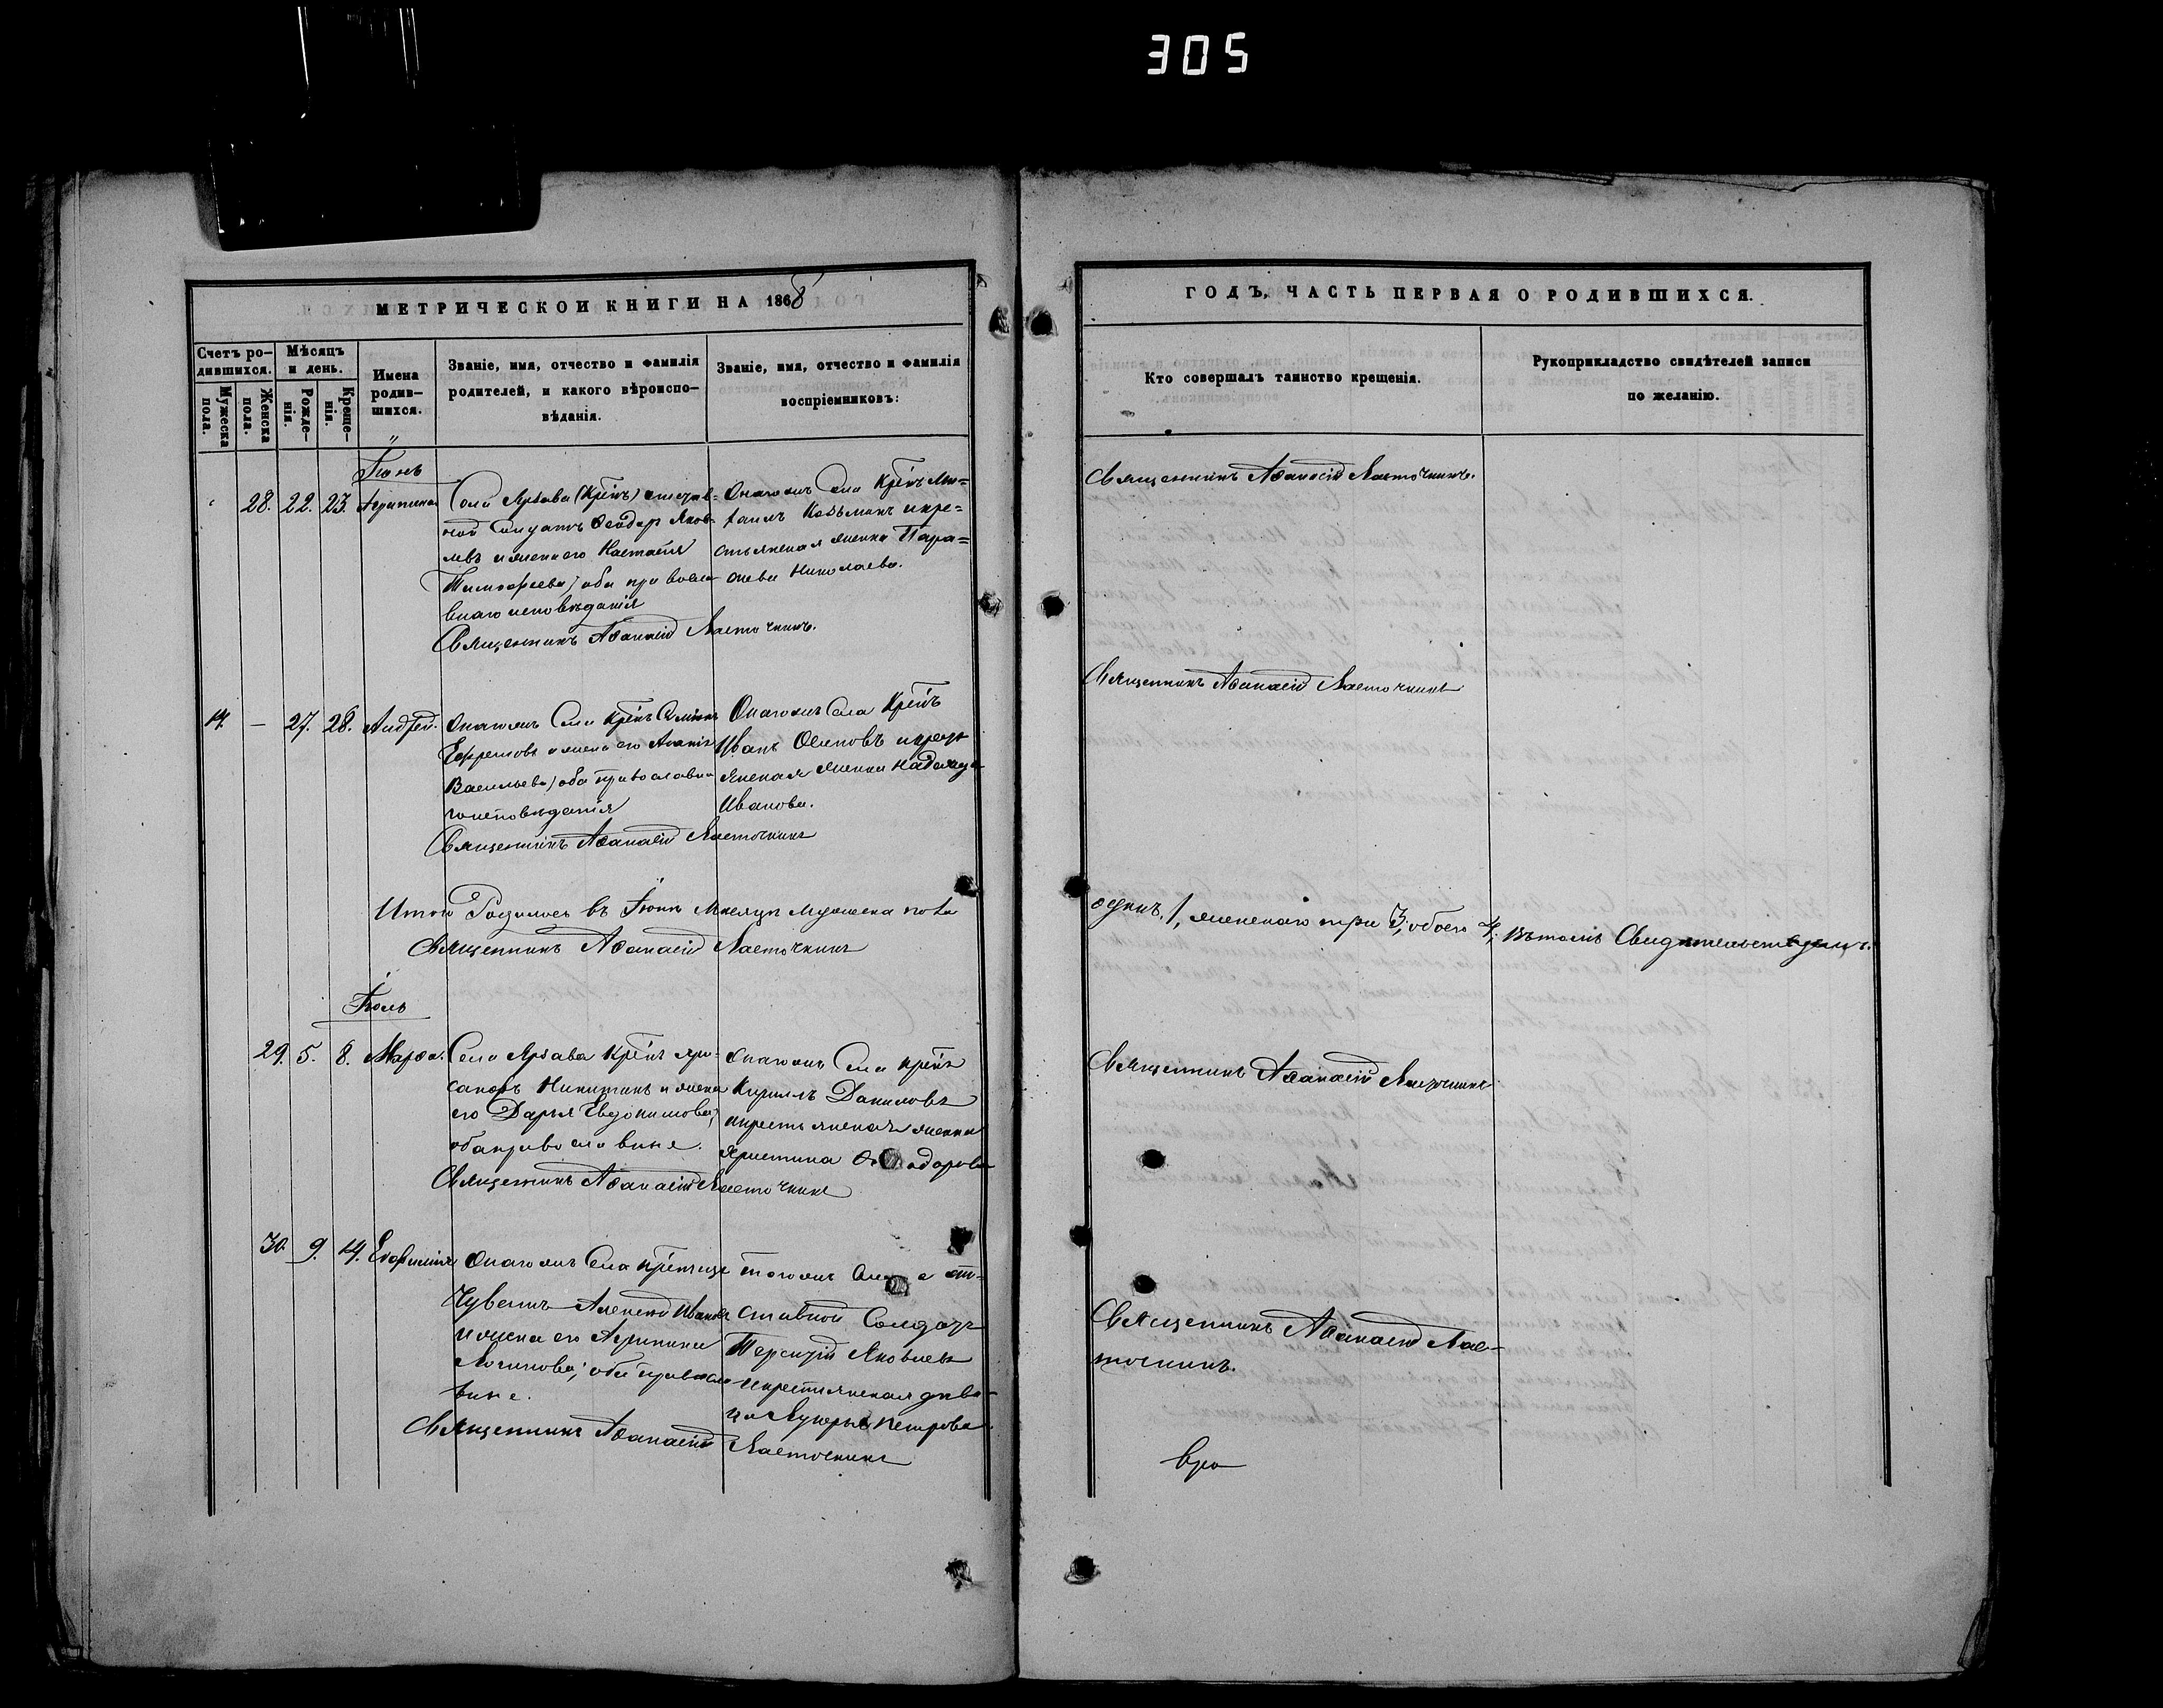 305
МЕТРИЧЕСКОЙ КНИГИ НА 1868
ГОДЪ, ЧАСТЬ ПЕРВАЯ О РОДИВШИХСЯ.
Счетъ ро-
дившихся.
Мужеска
пола.
Женска
пола.
Мѣсяцъ
и день.
Рожде-
нія.
Креще-
нія.
Имена
родив-
шихся.
Званіе, имя, отчество и фамилія
родителей, и какого вѣроиспо-
вѣданія.
Званіе, имя, отчество и фамилія
воспріемниковъ:
Кто совершалъ таинство крещенія.
Рукоприкладство свидѣтелей записи
по желанію.
Іюнь
28. 22. 23. Агрипина
Села (Крѣпъ) отстав-
ной Солдатъ Ѳеодоръ Яков-
левъ и жена его Настасія
Тимофеева; оба правосла-
внаго исповѣданія
Священникъ Аѳанасій Ласточкинъ.
Онагожъ Села
Козьминъ и кре-
стьянская женка Пара-
скева Николаева.
Священникъ Аѳанасій Ласточкинъ.
14. — 27. 28. Андрей.
Онагожъ Села
Ефремовъ и жена его
Васильева; оба православна-
го исповѣданія
Священникъ Аѳанасій Ласточкинъ
Онагожъ Села
Иванъ Осиповъ и крест
янская женка Надежда
Иванова.
Священникъ Аѳанасій Ласточкинъ
Итого Родилось въ Іюнѣ Мѣсяцѣ Мужеска пола
одинъ, 1, женскаго три 3, обоего 4; въ томъ Свидѣтельствуемъ.
Священникъ Аѳанасій Ласточкинъ
Іюль
29. 5. 8. Марѳа.
Села
Никитинъ и жена
его Дарья Евдокимова;
оба православные.
Священникъ Аѳанасій Ласточкинъ
Онагожъ Села
Кирилъ Даниловъ
и крестьянская женка
Христина Ѳеодорова
Священникъ Аѳанасій Ласточкинъ
30. 9. 14. Евфимія
Онагожъ Села
Алексей Ивановъ
и жена его Агрипина
Логинова; оба правосла-
вные.
Священникъ Аѳанасій Ласточкинъ
тогожъ Села от-
ставной Солдатъ
Терентій Яковлевъ
и крестьянская дѣви-
ца Лукерья Петрова
Священникъ Аѳанасій Лас-
точкинъ.